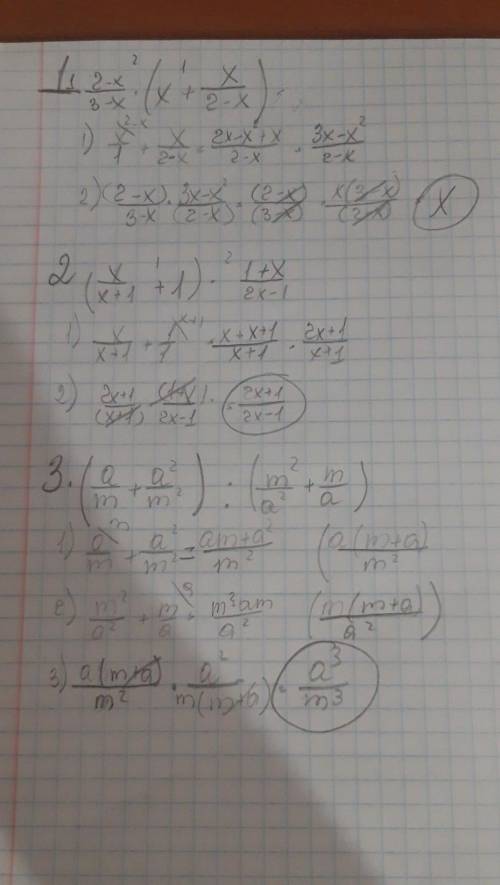 1. \frac{2-x}{3-x} \overset{2}{\cdot} \left(x \overset{1}{+} \frac{x}{2-x}\right) =
1) \frac{x^{\backslash 2-x}}{1} + \frac{x}{2-x} = \frac{2x-x^2+x}{2-x} = \frac{3x-x^2}{2-x}
2) \frac{(2-x)}{3-x} \cdot \frac{3x-x^2}{(2-x)} = \frac{(2-x)}{(3-x)} \cdot \frac{x(3-x)}{(2-x)} = x
2 \left(\frac{x}{x+1} \overset{1}{+} 1\right) \overset{2}{\cdot} \frac{1+x}{2x-1}
1) \frac{x}{x+1} + \frac{1^{\backslash x+1}}{1} = \frac{x+x+1}{x+1} = \frac{2x+1}{x+1}
2) \frac{2x+1}{(x+1)} \cdot \frac{(1+x)}{2x-1} = \frac{2x+1}{2x-1}
3. \left(\frac{a}{m} + \frac{a^2}{m^2}\right) : \left(\frac{m^2}{a^2} + \frac{m}{a}\right)
1) \frac{a^{\backslash m}}{m} + \frac{a^2}{m^2} = \frac{am+a^2}{m^2} \left(\frac{a(m+a)}{m^2}\right.
2) \frac{m^2}{a^2} + \frac{m^{\backslash a}}{a} = \frac{m^2+am}{a^2} \left(\frac{m(m+a)}{a^2}\right)
3) \frac{a(m+a)}{m^2} \cdot \frac{a^2}{m(m+a)} = \frac{a^3}{m^3}